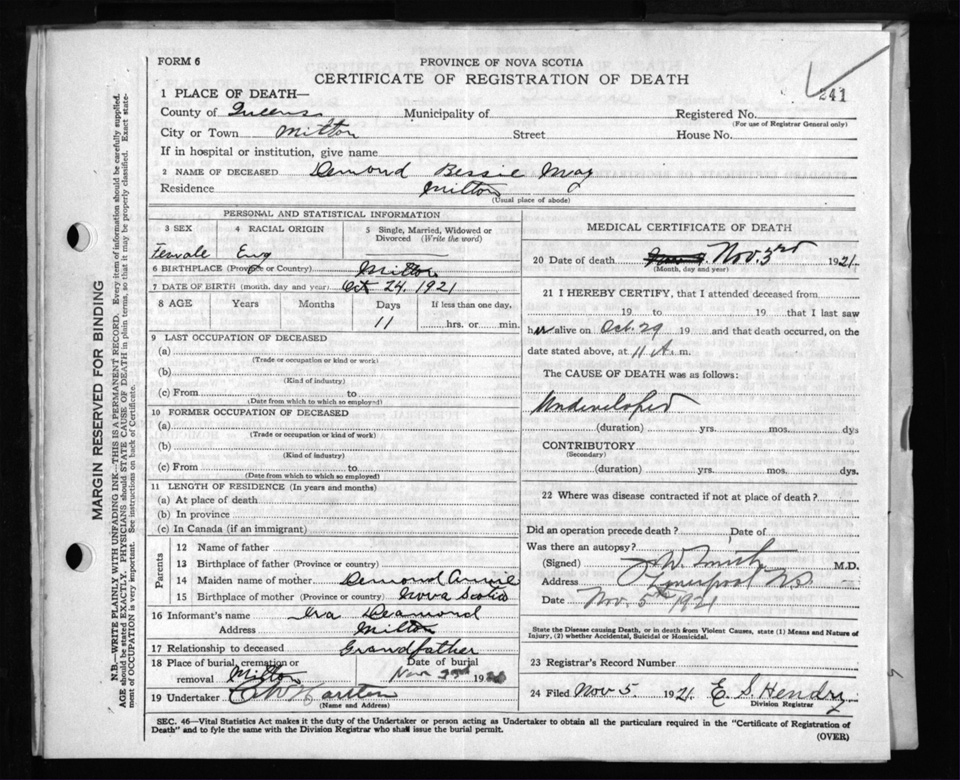 FORM 6
PROVINCE OF NOVA SCOTIA
CERTIFICATE OF REGISTRATION OF DEATH
241
1 PLACE OF DEATH—
County of Queens Municipality of Registered No.
(For use of Registrar General only)
City or Town Milton Street House No.
If in hospital or institution, give name
2 NAME OF DECEASED Demond Bessie May
Residence Milton
(Usual place of abode)
PERSONAL AND STATISTICAL INFORMATION
3 SEX 4 RACIAL ORIGIN 5 Single, Married, Widowed or Divorced (Write the word)
Female Eng —
6 BIRTHPLACE (Province or Country) Milton
7 DATE OF BIRTH (month, day and year) Oct 24. 1921
8 AGE Years Months Days If less than one day,
11 hrs. or min.
9 LAST OCCUPATION OF DECEASED
(a)
(Trade or occupation or kind of work)
(b)
(Kind of industry)
(c) From to
(Date from which to which so employed)
10 FORMER OCCUPATION OF DECEASED
(a)
(Trade or occupation or kind of work)
(b)
(Kind of industry)
(c) From to
(Date from which to which so employed)
11 LENGTH OF RESIDENCE (In years and months)
(a) At place of death
(b) In province
(c) In Canada (if an immigrant)
Parents
12 Name of father
13 Birthplace of father (Province or country)
14 Maiden name of mother Demond Annie
15 Birthplace of mother (Province or country) Nova Scotia
16 Informant's name Ira Deamond
Address Milton
17 Relationship to deceased Grandfather
18 Place of burial, cremation or removal Milton Date of burial Nov 192
19 Undertaker
(Name and Address)
MEDICAL CERTIFICATE OF DEATH
20 Date of death Nov. 3rd 1921.
(Month, day and year)
21 I HEREBY CERTIFY, that I attended deceased from
19 to 19 that I last saw
her alive on Oct. 29 19 and that death occurred, on the
date stated above, at 11 A. m.
The CAUSE OF DEATH was as follows:
Undeveloped
(duration) yrs. mos. dys
CONTRIBUTORY
(Secondary)
(duration) yrs. mos. dys.
22 Where was disease contracted if not at place of death?
Did an operation precede death? Date of
Was there an autopsy?
(Signed) J W Smith M.D.
Address Liverpool NS
Date Nov. 5th 1921
State the Disease causing Death, or in death from Violent Causes, state (1) Means and Nature of
Injury, (2) whether Accidental, Suicidal or Homicidal.
23 Registrar's Record Number
24 Filed Nov 5. 1921. E. S. Hendry
Division Registrar
SEC. 46—Vital Statistics Act makes it the duty of the Undertaker or person acting as Undertaker to obtain all the particulars required in the "Certificate of Registration of
Death" and to fyle the same with the Division Registrar who shall issue the burial permit.
(OVER)
MARGIN RESERVED FOR BINDING
N.B.—WRITE PLAINLY WITH UNFADING INK—THIS IS A PERMANENT RECORD. Every item of information should be carefully supplied.
AGE should be stated EXACTLY. PHYSICIANS should STATE CAUSE OF DEATH in plain terms, so that it may be properly classified. Exact state-
ment of OCCUPATION is very important. See instructions on back of Certificate.